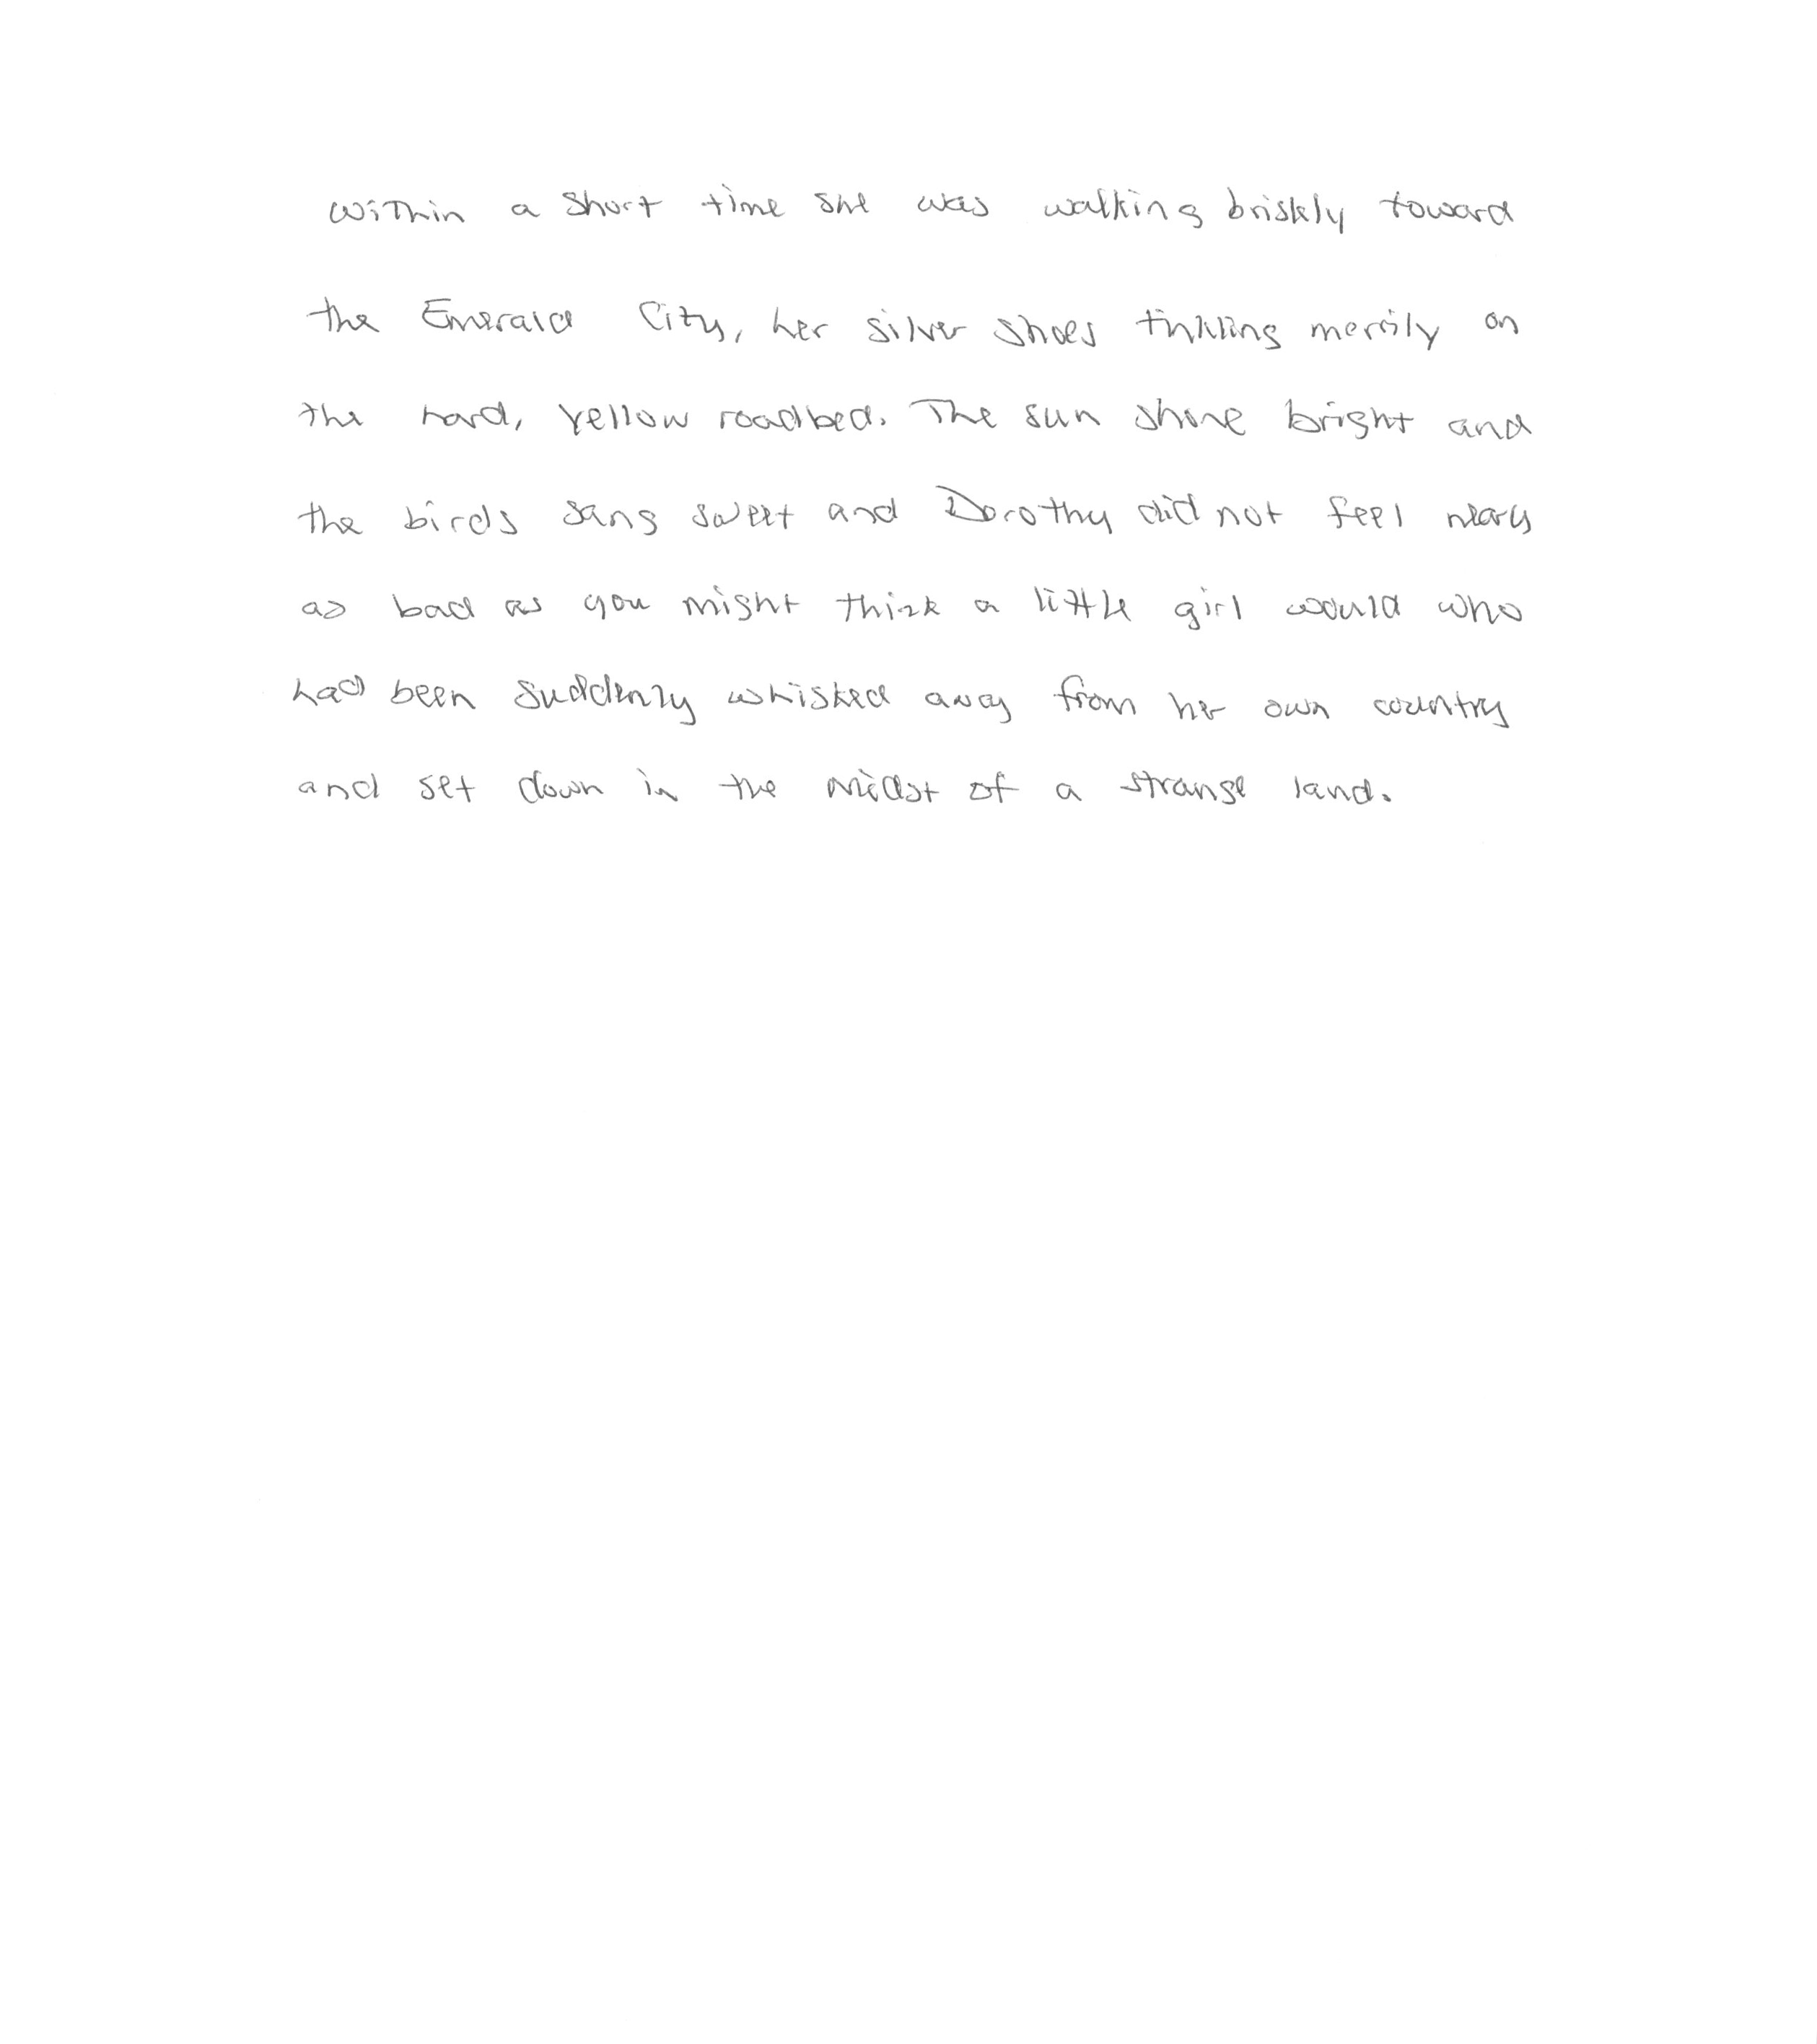 Within a short time she was walking briskly toward
the Emerald City, her silver shoes tinkling merrily on
the hard, yellow roadbed. The sun shone bright and
the birds sang sweet and Dorothy did not feel neary
as bad as you might think a little girl would who
had been suddenly whisked away from her own country
and set down in the midst of a strange land.